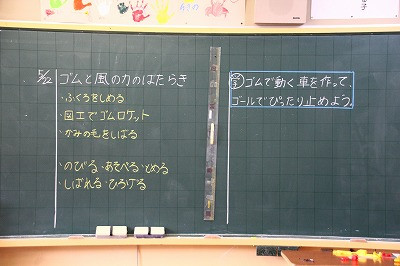 5/12 ゴムと風の力のはたらき
・ふくろをしめる
・図工でゴムロケット
・かみの毛をしばる
・のびる・あそべる・とめる
・しばれる・ひろげる
ゴムで動く車を作って、
ゴールでぴったり止めよう。